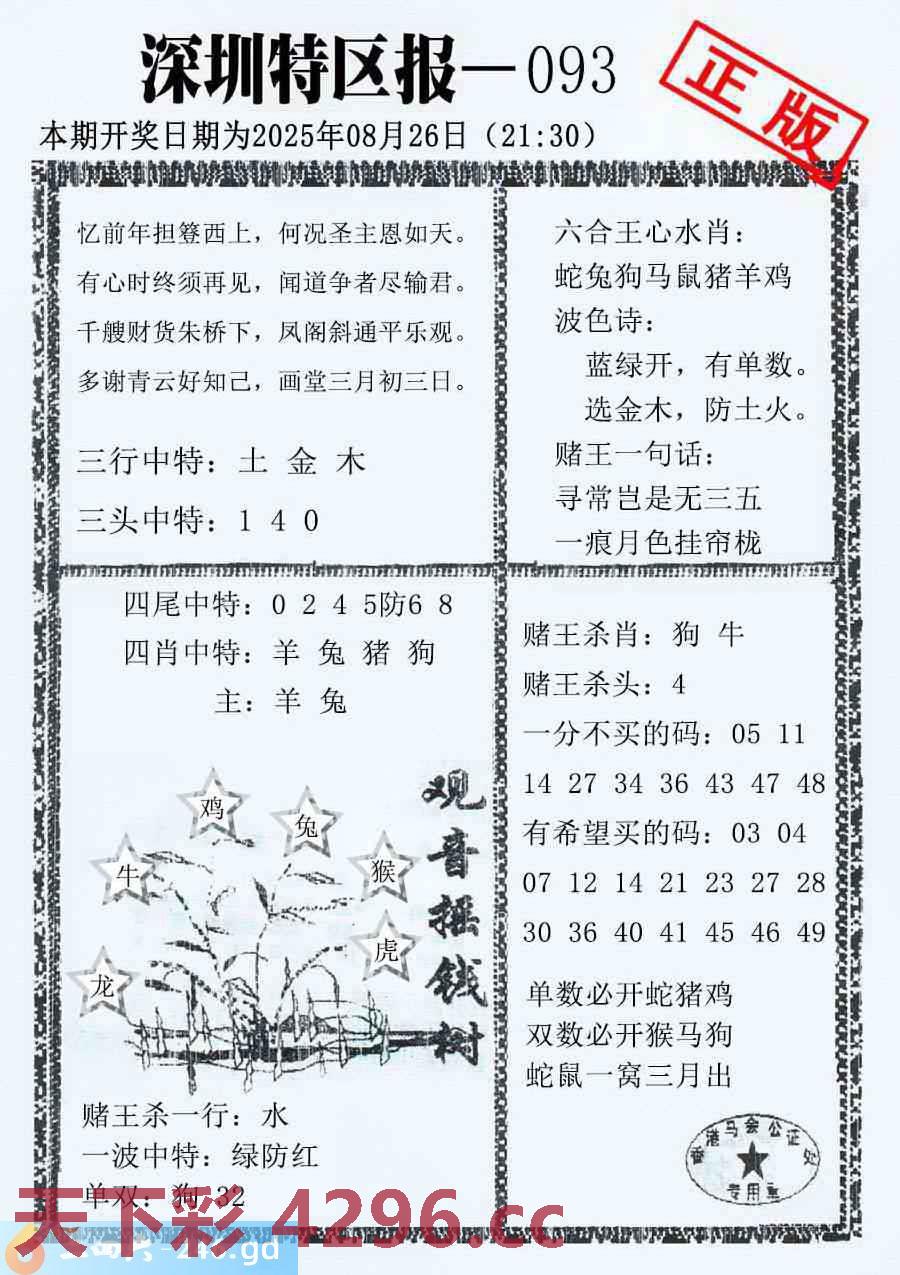 深圳特区报—093
正版
本期开奖日期为2025年08月26日（21:30）
忆前年担簦西上，何况圣主恩如天。
有心时终须再见，闻道争者尽输君。
千艘财货朱桥下，凤阁斜通平乐观。
多谢青云好知己，画堂三月初三日。
三行中特：土 金 木
三头中特：1 4 0
六合王心水肖：
蛇兔狗马鼠猪羊鸡
波色诗：
蓝绿开，有单数。
选金木，防土火。
赌王一句话：
寻常岂是无三五
一痕月色挂帘栊
四尾中特：0 2 4 5防6 8
四肖中特：羊 兔 猪 狗
主：羊 兔
鸡
兔
牛
猴
虎
龙
观音摇钱树
赌王杀一行：水
一波中特：绿防红
单双：狗 32
赌王杀肖：狗 牛
赌王杀头：4
一分不买的码：05 11
14 27 34 36 43 47 48
有希望买的码：03 04
07 12 14 21 23 27 28
30 36 40 41 45 46 49
单数必开蛇猪鸡
双数必开猴马狗
蛇鼠一窝三月出
香港马会公证处
专用章
天下彩 4296.cc
-246.gd